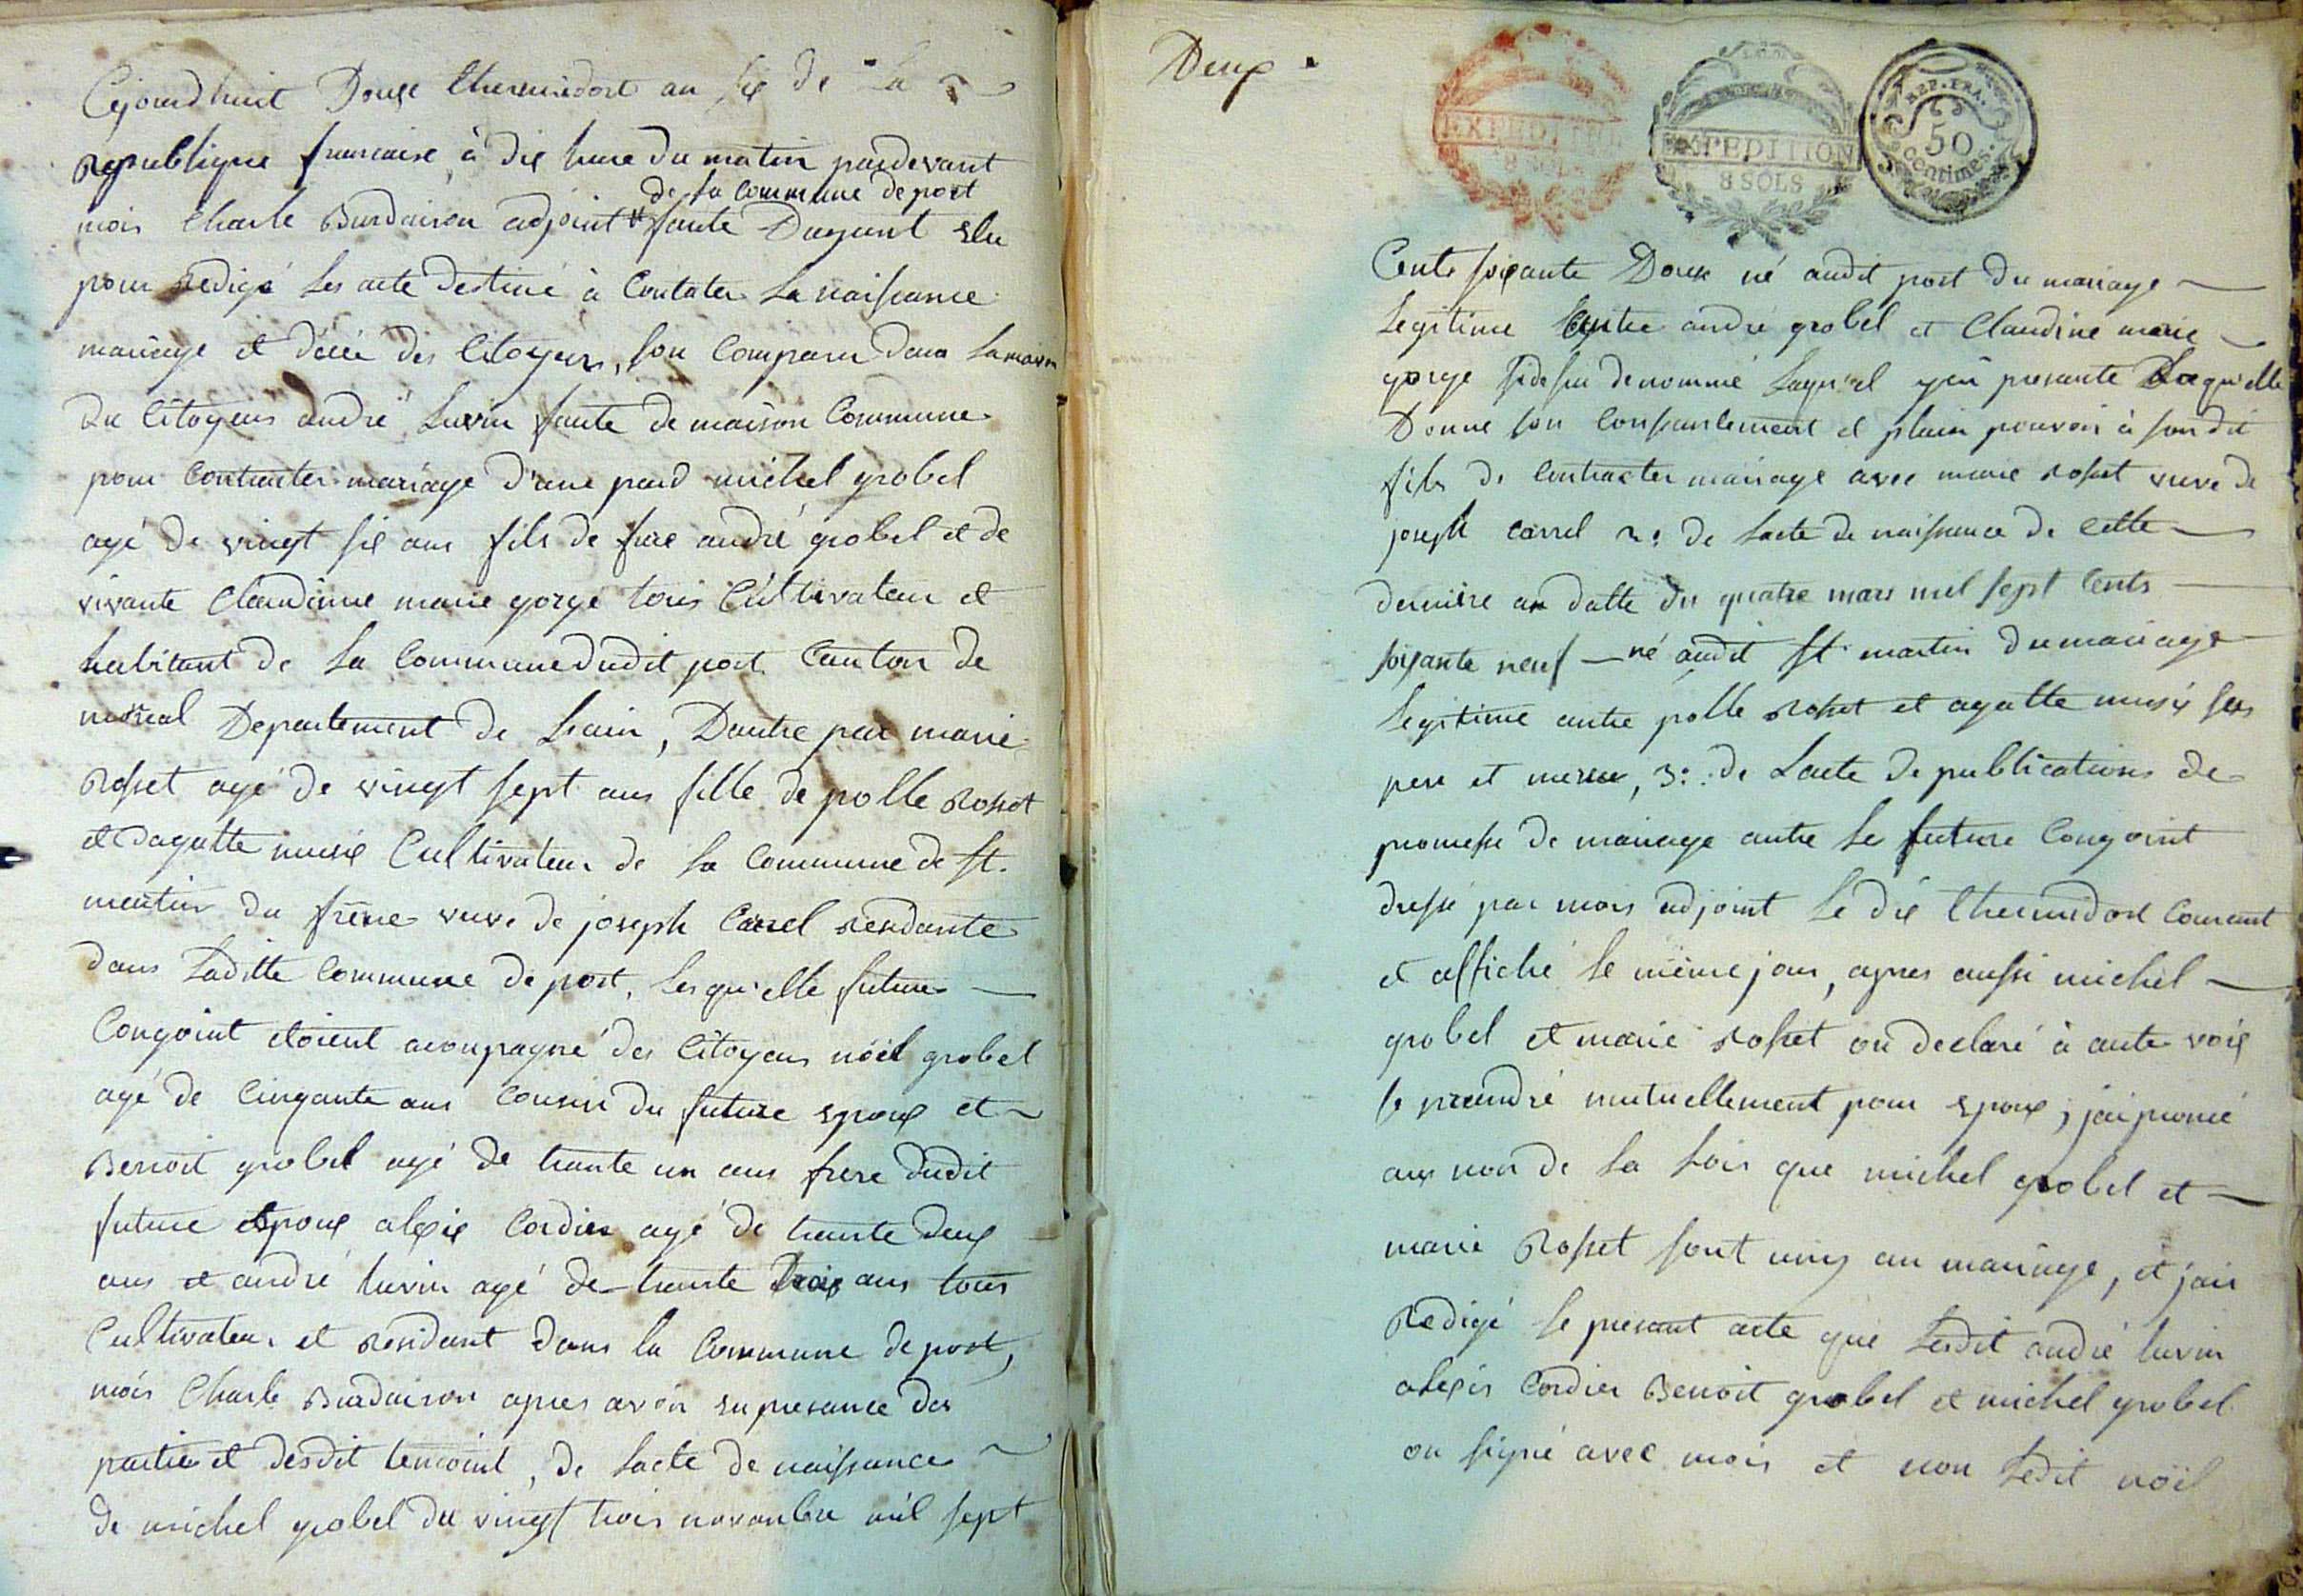 Cejourd huit Douze thermidort an six de La
republique francaise à dix heure du matin pardevant
de la commune de port
mois Charle Burdairon adjoint faute Dagent elu
pour redigé Les acte destiné à Contater La naissance
mariage et décée des Citoyens, son Comparu dans La maison
du Citoyens andré Luvin faute de maison Commune
pour Contracter mariage d'une pard michel grobel
agé de vingt six ans fils de fure andré grobel et de
vivante Claudinne marie gorge tous Cultivateur et
habitant de La Commune dudit port Canton de
moreal Departement de Lain, Dautre par marie
Rosset agé de vingt sept ans fille de polle Rosset
et dagatte musÿ Cultivateur de La Commune de St.
meartin du frène veuve de joseph Carrel residante
dans Laditte Commune de port, Les qu'elle future
Congoint etoient acompagné des Citoyens nöel grobel
agé de Cinqante ans Cousin du future epoux et
Benoit grobel agé de trante un ans frere dudit
future epoux alexis Cordier agé de trante deux
ans et andré luvin agé de trante trois ans tous
Cultivateur et residant dans la Commune de port,
mois Charle Burdairon apres avoir en presance des
partie et desdit temoint, de Lacte de naissance
de michel grobel du vingt trois novanbre mil sept
Deux
EXPEDITION
8 SOLS
EXPEDITION
8 SOLS
REP. FRA.
50
Centimes.
Cents soixante Douze né audit port du mariage
Legitime Entre andré grobel et Claudine marie
gorge si dessu denommé Laqu'el y est presante Laqu'elle
Donne son Consantement et plain pouvoir à son dit
fils de Contracter mariage avec marie rosset veuve de
joseph carrel 2: de Lacte de naissance de Cette
derniere an datte du quatre mars mil sept Cents
soixante neuf né audit St martin du mariage
Legitime antre polle Rosset et agatte musÿ ses
pere et merre, 3: de Lacte de publications de
promesse de mariage antre Le future Congoint
dressé par mois adjoint Le dix thermidort Courant
et affiché le même jour, apres aussi michel
grobel et marie rosset on declaré à aute voix
se prandre mutuellement pour epoux, jai pronocé
aux non de La Lois que michel grobel et
marie Rosset sont unis an mariage, et jais
Redigé Le presant acte que Lesdit andré luvin
alexis Cordier Benoit grobel et michel grobel
on signé avec mois et non Ledit nöel